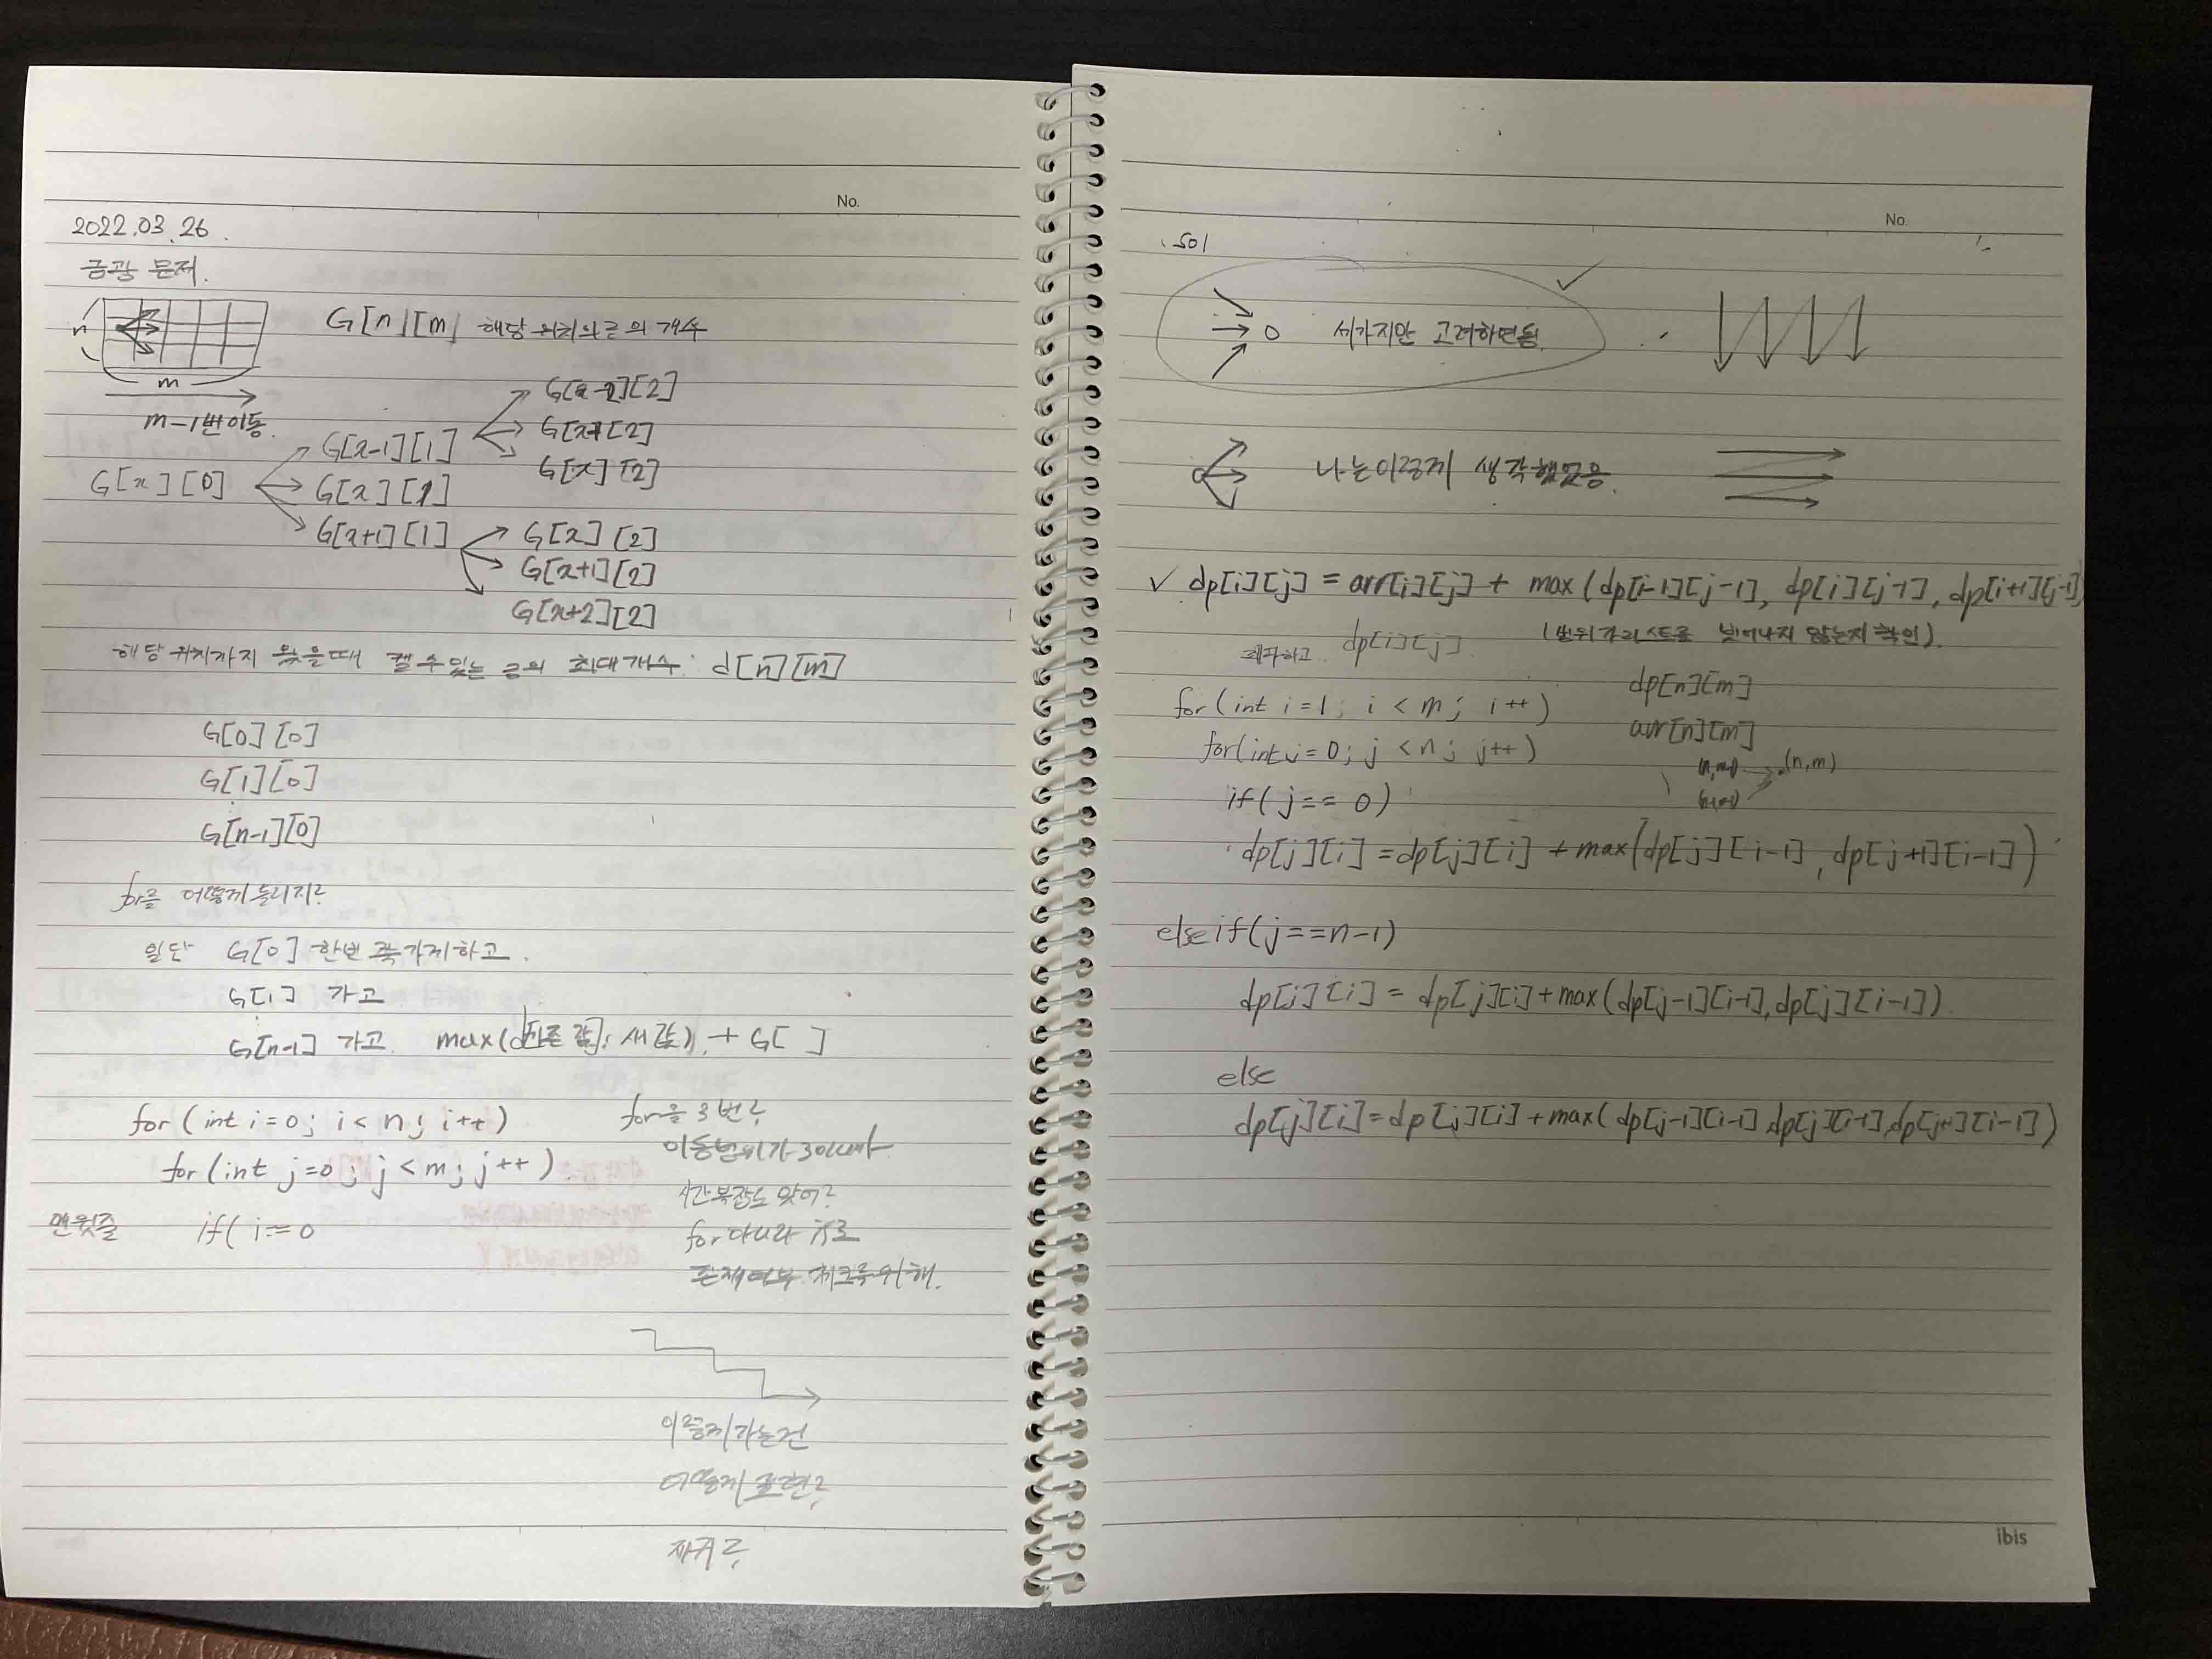 No.
2022.03.26.
금광 문제.
n
G[n][m] 해당 위치의 금의 개수
m
m-1번 이동.
G[x-2][2]
G[x-1][1]
G[x][2]
G[x][0]
G[x][1]
G[x+1][1]
G[x][2]
G[x+1][2]
G[x+2][2]
해당 위치까지 왔을때 캘 수 있는 금의 최대개수: d[n][m]
G[0][0]
G[1][0]
G[n-1][0]
for를 어떻게 돌리지?
일단 G[0] 한번 쭉 가게하고.
G[1] 가고
G[n-1] 가고. max(d[기존 값], 새 값) + G[ ]
for (int i=0; i<n; i++)
for (int j=0; j<m; j++)
맨윗줄 if( i==0
for을 3번?
이동범위가 3이니까
시간복잡도 맞어?
for 아니라 if로
존재여부 체크를 위해.
이렇게 가는건
어떻게 표현?
재귀?
No.
sol
0 세가지만 고려하면됨.
나는 이렇게 생각했었음.
✓ dp[i][j] = arr[i][j] + max (dp[i-1][j-1], dp[i][j-1], dp[i+1][j-1])
(범위가 리스트를 벗어나지 않는지 확인).
dp[i][j].
dp[n][m]
arr[n][m]
for (int i=1; i<m; i++)
for(int j=0; j<n; j++)
(n,m)
if( j==0)
dp[j][i] = dp[j][i] + max(dp[j][i-1], dp[j+1][i-1])
else if(j==n-1)
dp[j][i] = dp[j][i] + max(dp[j-1][i-1], dp[j][i-1]).
else
dp[j][i] = dp[j][i] + max( dp[j-1][i-1], dp[j][i-1], dp[j+1][i-1])
ibis